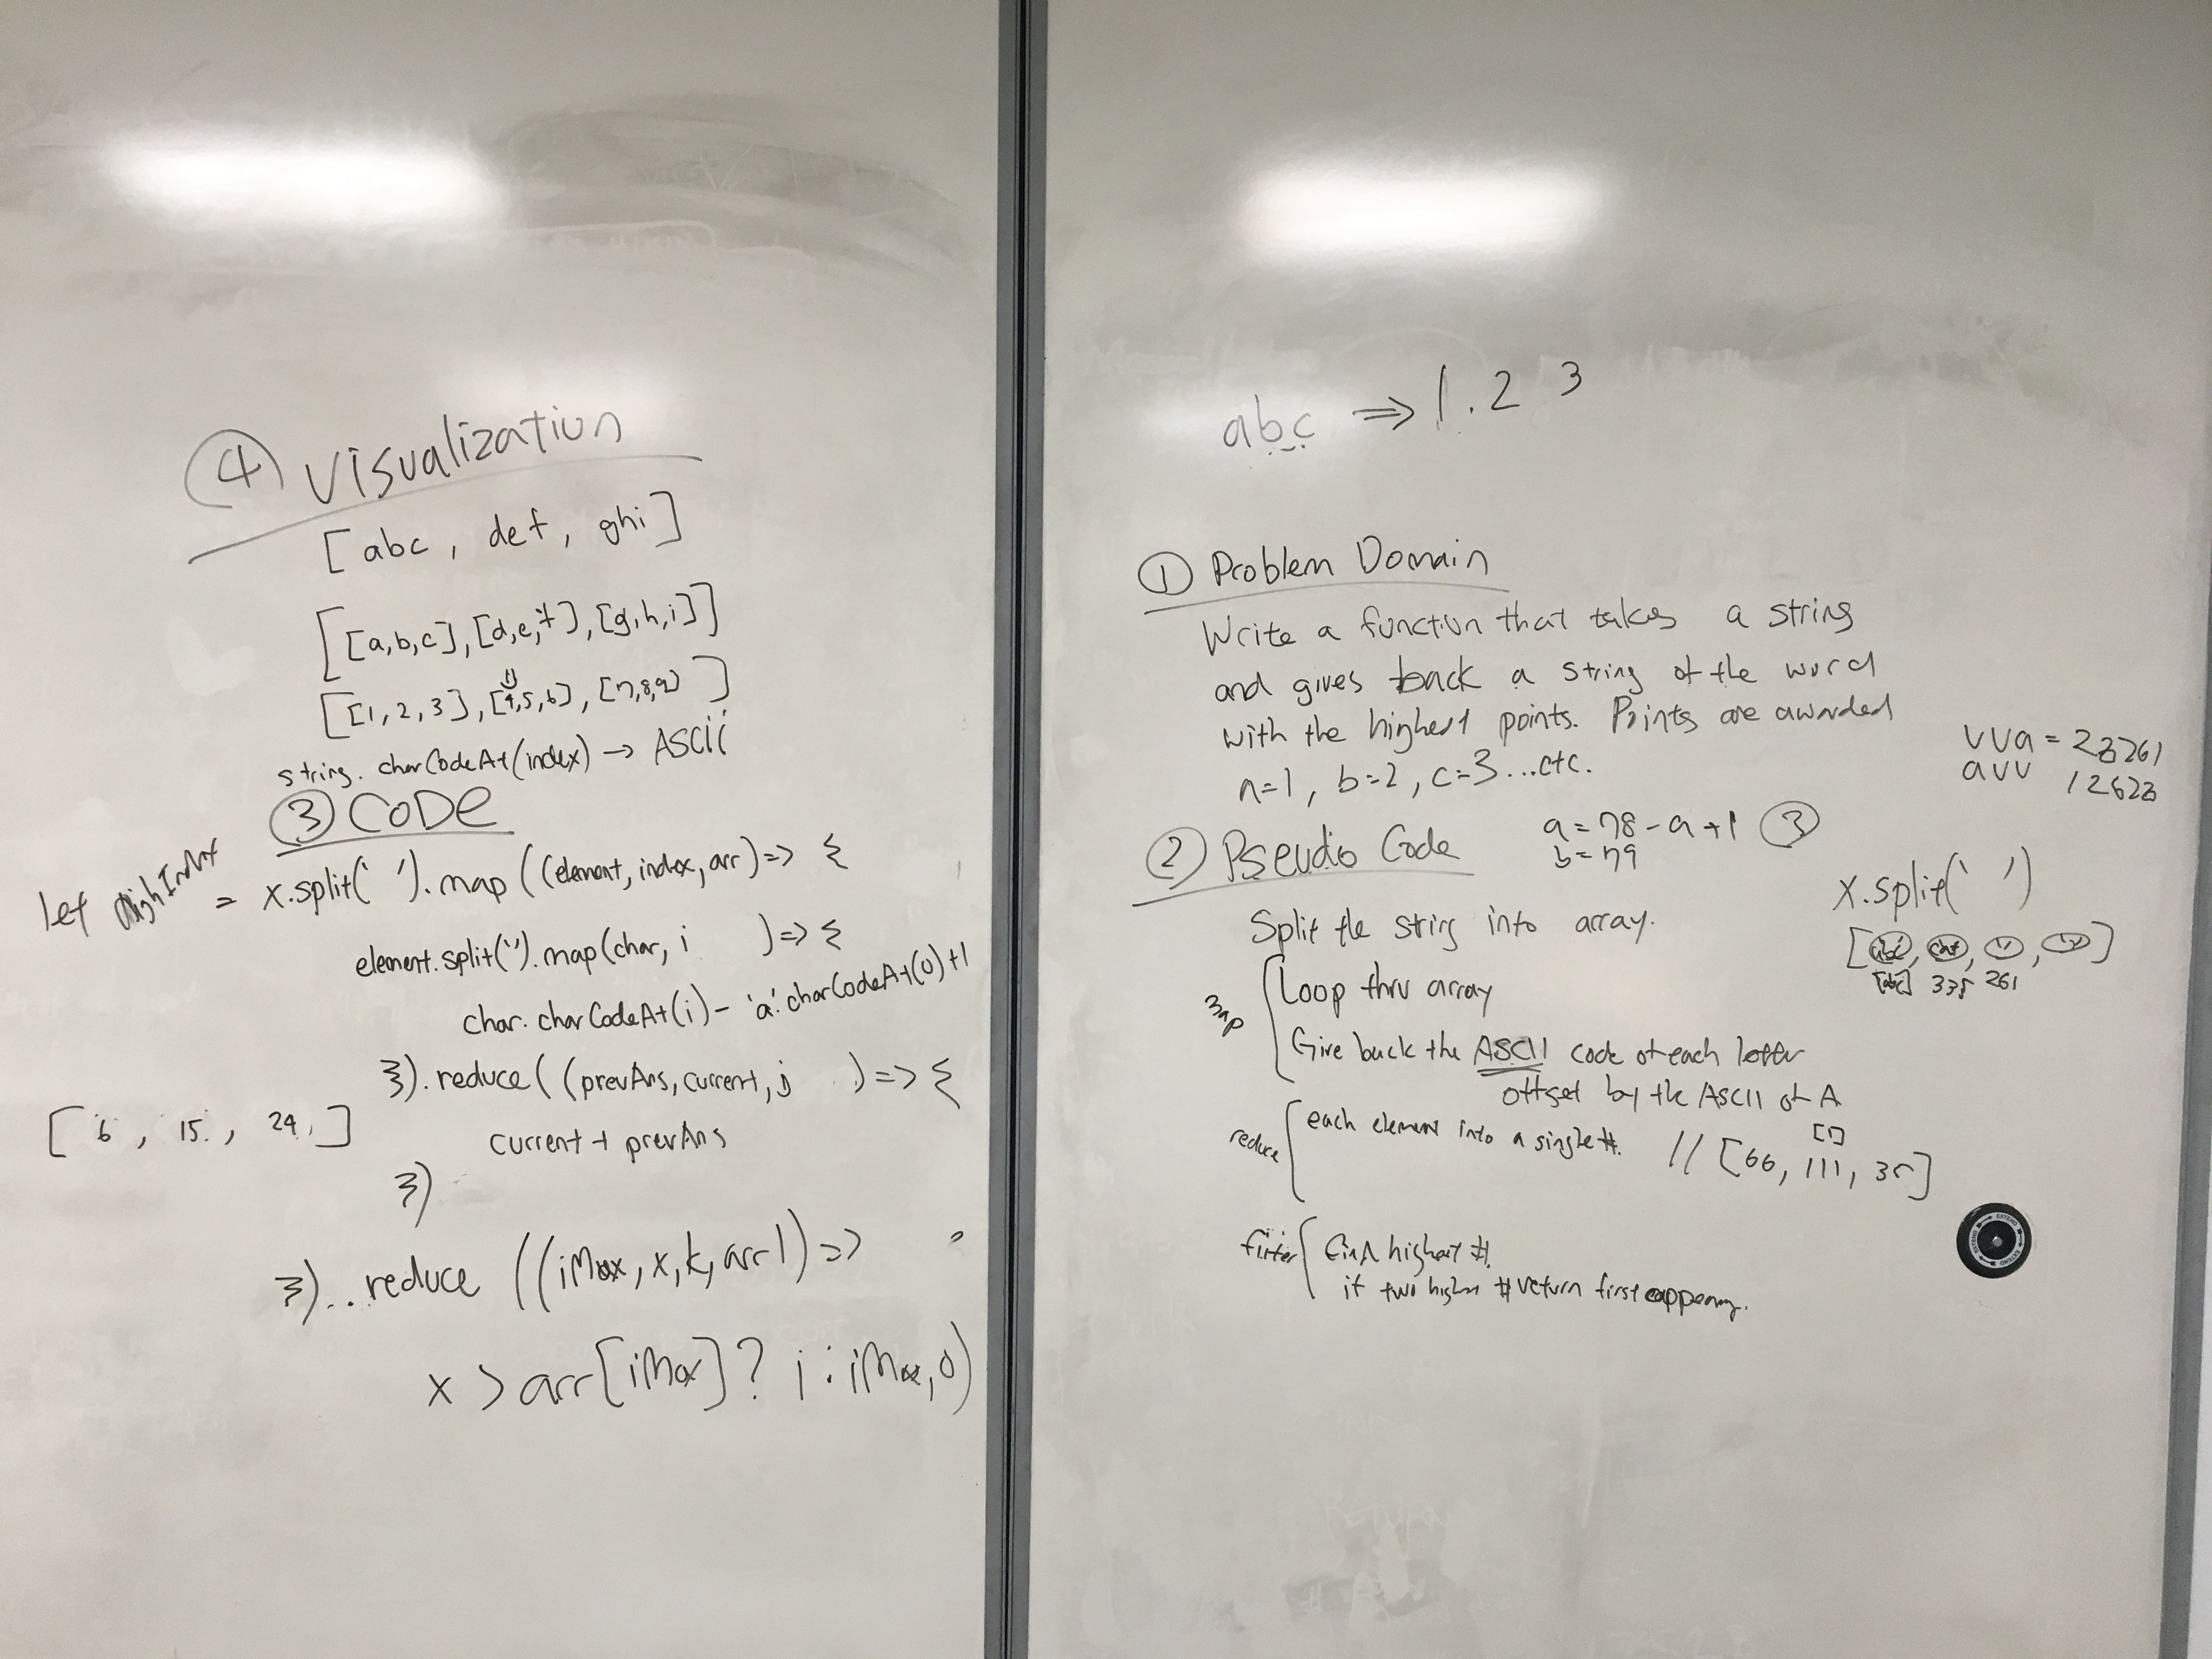 ④ Visualization
[abc, def, ghi]
[[a,b,c],[d,e,f],[g,h,i]]
[[1,2,3],[4,5,6],[7,8,9]]
string. charCodeAt(index) → ASCii
③ CODE
let HighIndex = x.split(' ').map((element, index, arr) => {
element.split('').map(char, i ) => {
char. charCodeAt(i) - 'a'.charCodeAt(0)+1
}).reduce((prevAns, current, j ) => {
[6, 15, 24,]
current + prevAns
})
})..reduce((iMax, x, k, arr) =>
x > arr[iMax] ? i : iMax, 0)
abc => 1.2 3
① Problem Domain
Write a function that takes a string
and gives back a string of the word
with the highest points. Points are awarded
a=1, b=2, c=3...etc.
vva =
avv
a=78-a+1 ③
b=79
② Pseudo Code
x.split(' ')
Split the string into array.
[abc]
261
map
Loop thru array
Give back the ASCII code of each letter
offset by the ASCII of A
reduce
each element into a single #.
[1]
// [66, 111, 35]
filter
find highest #.
if two higher # return first
EXTEND